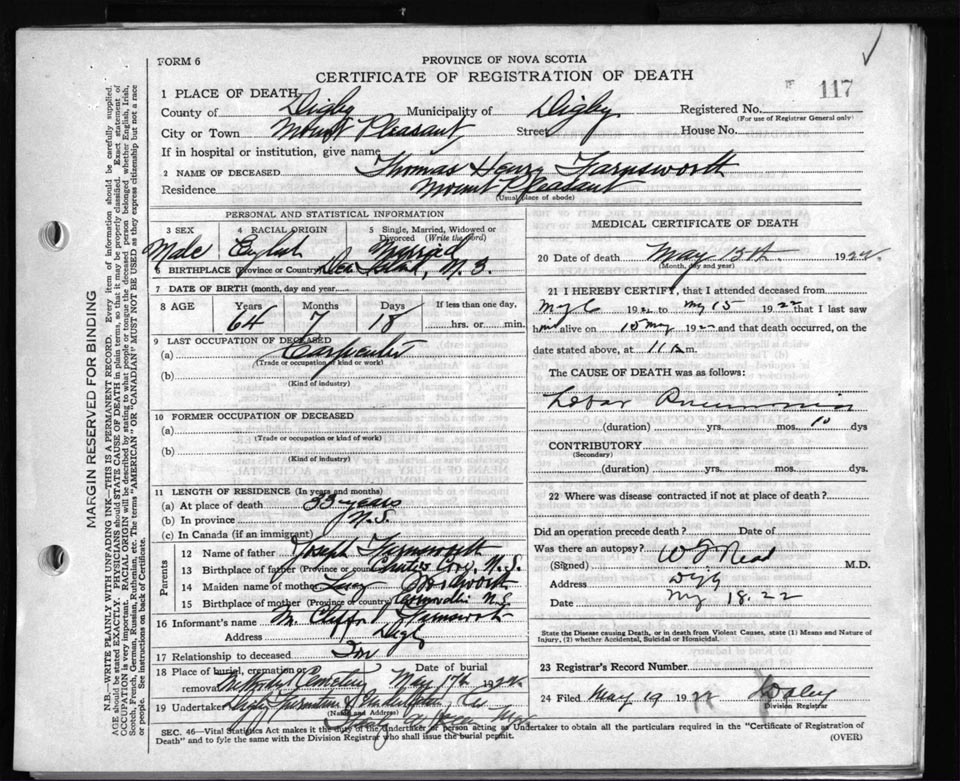 FORM 6
PROVINCE OF NOVA SCOTIA
CERTIFICATE OF REGISTRATION OF DEATH
117
1 PLACE OF DEATH
County of Digby Municipality of Digby Registered No.
(For use of Registrar General only)
City or Town Mount Pleasant Street House No.
If in hospital or institution, give name
2 NAME OF DECEASED Thomas Henry Farnsworth
Residence Mount Pleasant
(Usual place of abode)
PERSONAL AND STATISTICAL INFORMATION
3 SEX 4 RACIAL ORIGIN 5 Single, Married, Widowed or Divorced (Write the word)
Male English Married
6 BIRTHPLACE (Province or Country) Island, N. S.
7 DATE OF BIRTH (month, day and year)
8 AGE Years Months Days If less than one day,
64 7 18 hrs. or min.
9 LAST OCCUPATION OF DECEASED
(a) Carpenter
(Trade or occupation or kind of work)
(b)
(Kind of industry)
10 FORMER OCCUPATION OF DECEASED
(a)
(Trade or occupation or kind of work)
(b)
(Kind of industry)
11 LENGTH OF RESIDENCE (In years and months)
(a) At place of death 33 years
(b) In province N.S.
(c) In Canada (if an immigrant)
Parents
12 Name of father Joseph Farnsworth
13 Birthplace of father (Province or country) Cove, N. S.
14 Maiden name of mother Lucy
15 Birthplace of mother (Province or country) N.S.
16 Informant's name M. Clifford Farnsworth
Address Digby
17 Relationship to deceased Son
18 Place of burial, cremation or removal Cemetery Date of burial May 17th 1922
19 Undertaker Digby Furniture & Undertaking Co
(Name and Address)
SEC. 46—Vital Statistics Act makes it the duty of the undertaker or person acting as Undertaker to obtain all the particulars required in the "Certificate of Registration of
Death" and to fyle the same with the Division Registrar who shall issue the burial permit.
(OVER)
MEDICAL CERTIFICATE OF DEATH
20 Date of death May 15th 1922
(Month, day and year)
21 I HEREBY CERTIFY, that I attended deceased from
My 6 1922 to My 15 1922 that I last saw
him alive on 15 May 1922 and that death occurred, on the
date stated above, at 11 m.
The CAUSE OF DEATH was as follows:
Lobar Pneumonia
(duration) yrs. mos. 10 dys
CONTRIBUTORY
(Secondary)
(duration) yrs. mos. dys.
22 Where was disease contracted if not at place of death?
Did an operation precede death? Date of
Was there an autopsy?
(Signed) W F Read M.D.
Address Digby
Date My 18. 22
State the Disease causing Death, or in death from Violent Causes, state (1) Means and Nature of
Injury, (2) whether Accidental, Suicidal or Homicidal.
23 Registrar's Record Number
24 Filed May 19 1922 Daley
Division Registrar
MARGIN RESERVED FOR BINDING
N.B.—WRITE PLAINLY WITH UNFADING INK—THIS IS A PERMANENT RECORD. Every item of information should be carefully supplied.
AGE should be stated EXACTLY. PHYSICIANS should STATE CAUSE OF DEATH in plain terms, so that it may be properly classified. Exact statement of
OCCUPATION is very important. RACIAL ORIGIN will be described by stating to what people or tongue the deceased person belonged whether English, Irish,
Scotch, French, German, Russian, Ruthenian, etc. The terms "AMERICAN" OR "CANADIAN" MUST NOT BE USED as they express citizenship but not a race
or people. See instructions on back of Certificate.